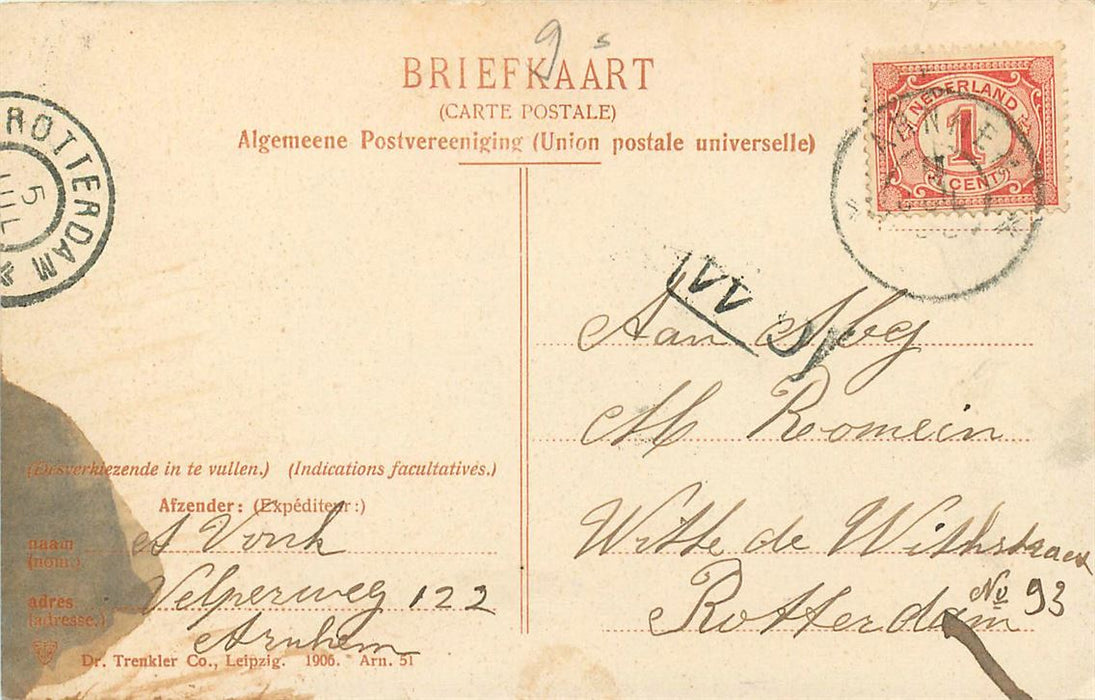 9 s
BRIEFKAART
(CARTE POSTALE)
Algemeene Postvereeniging (Union postale universelle)
NEDERLAND
1
CENT
ROTTERDAM
5
JUL
Aan
M Romein
Witte de Withstraat
No 93
Rotterdam
(Desverkiezende in te vullen.) (Indications facultatives.)
Afzender: (Expéditeur:)
naam
(nom:)
Vonk
adres
(adresse.)
Velperweg 122
Arnhem
Dr. Trenkler Co., Leipzig. 1906. Arn. 51